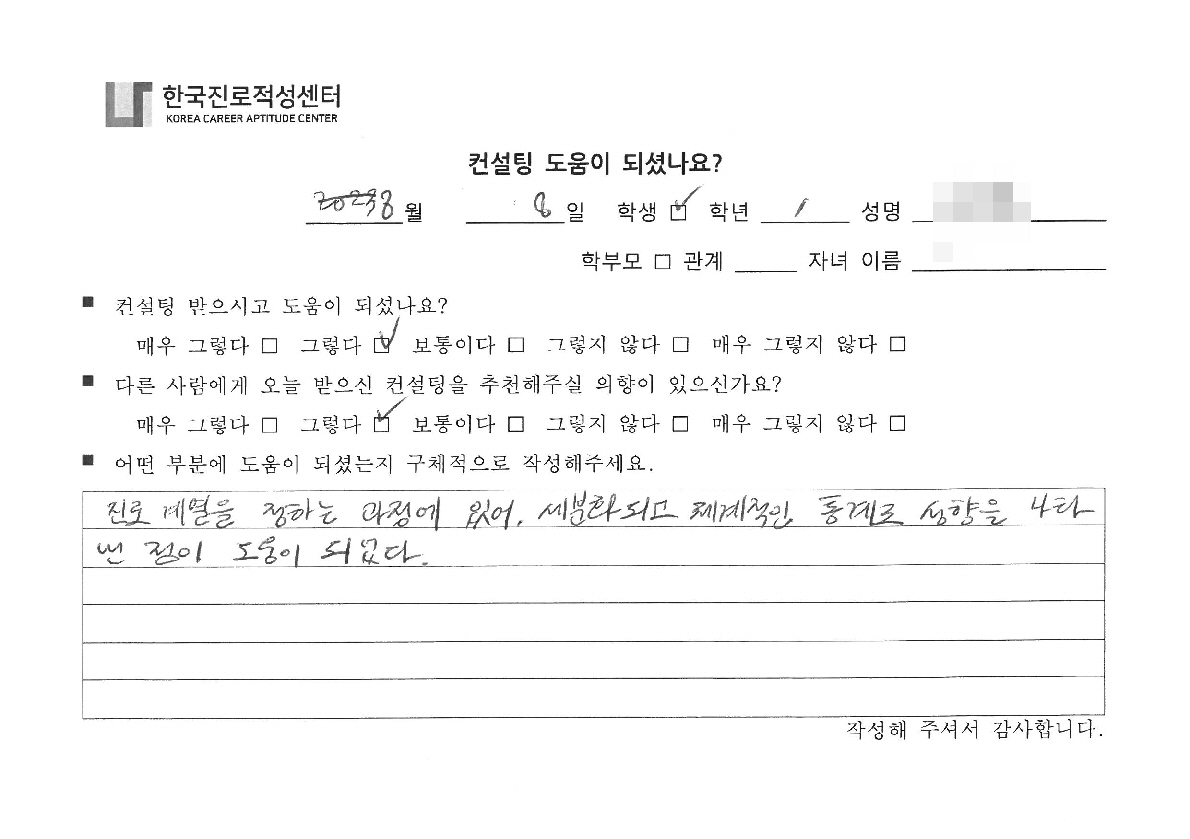 한국진로적성센터
KOREA CAREER APTITUDE CENTER
컨설팅 도움이 되셨나요?
8월 8일 학생 ☑ 학년 1 성명
학부모 □ 관계 자녀 이름
■ 컨설팅 받으시고 도움이 되셨나요?
매우 그렇다 □ 그렇다 ☑ 보통이다 □ 그렇지 않다 □ 매우 그렇지 않다 □
■ 다른 사람에게 오늘 받으신 컨설팅을 추천해주실 의향이 있으신가요?
매우 그렇다 □ 그렇다 ☑ 보통이다 □ 그렇지 않다 □ 매우 그렇지 않다 □
■ 어떤 부분에 도움이 되셨는지 구체적으로 작성해주세요.
진로 계열을 정하는 과정에 있어, 세분화되고 체계적인 통계로 성향을 나타
낸 점이 도움이 되었다.
작성해 주셔서 감사합니다.